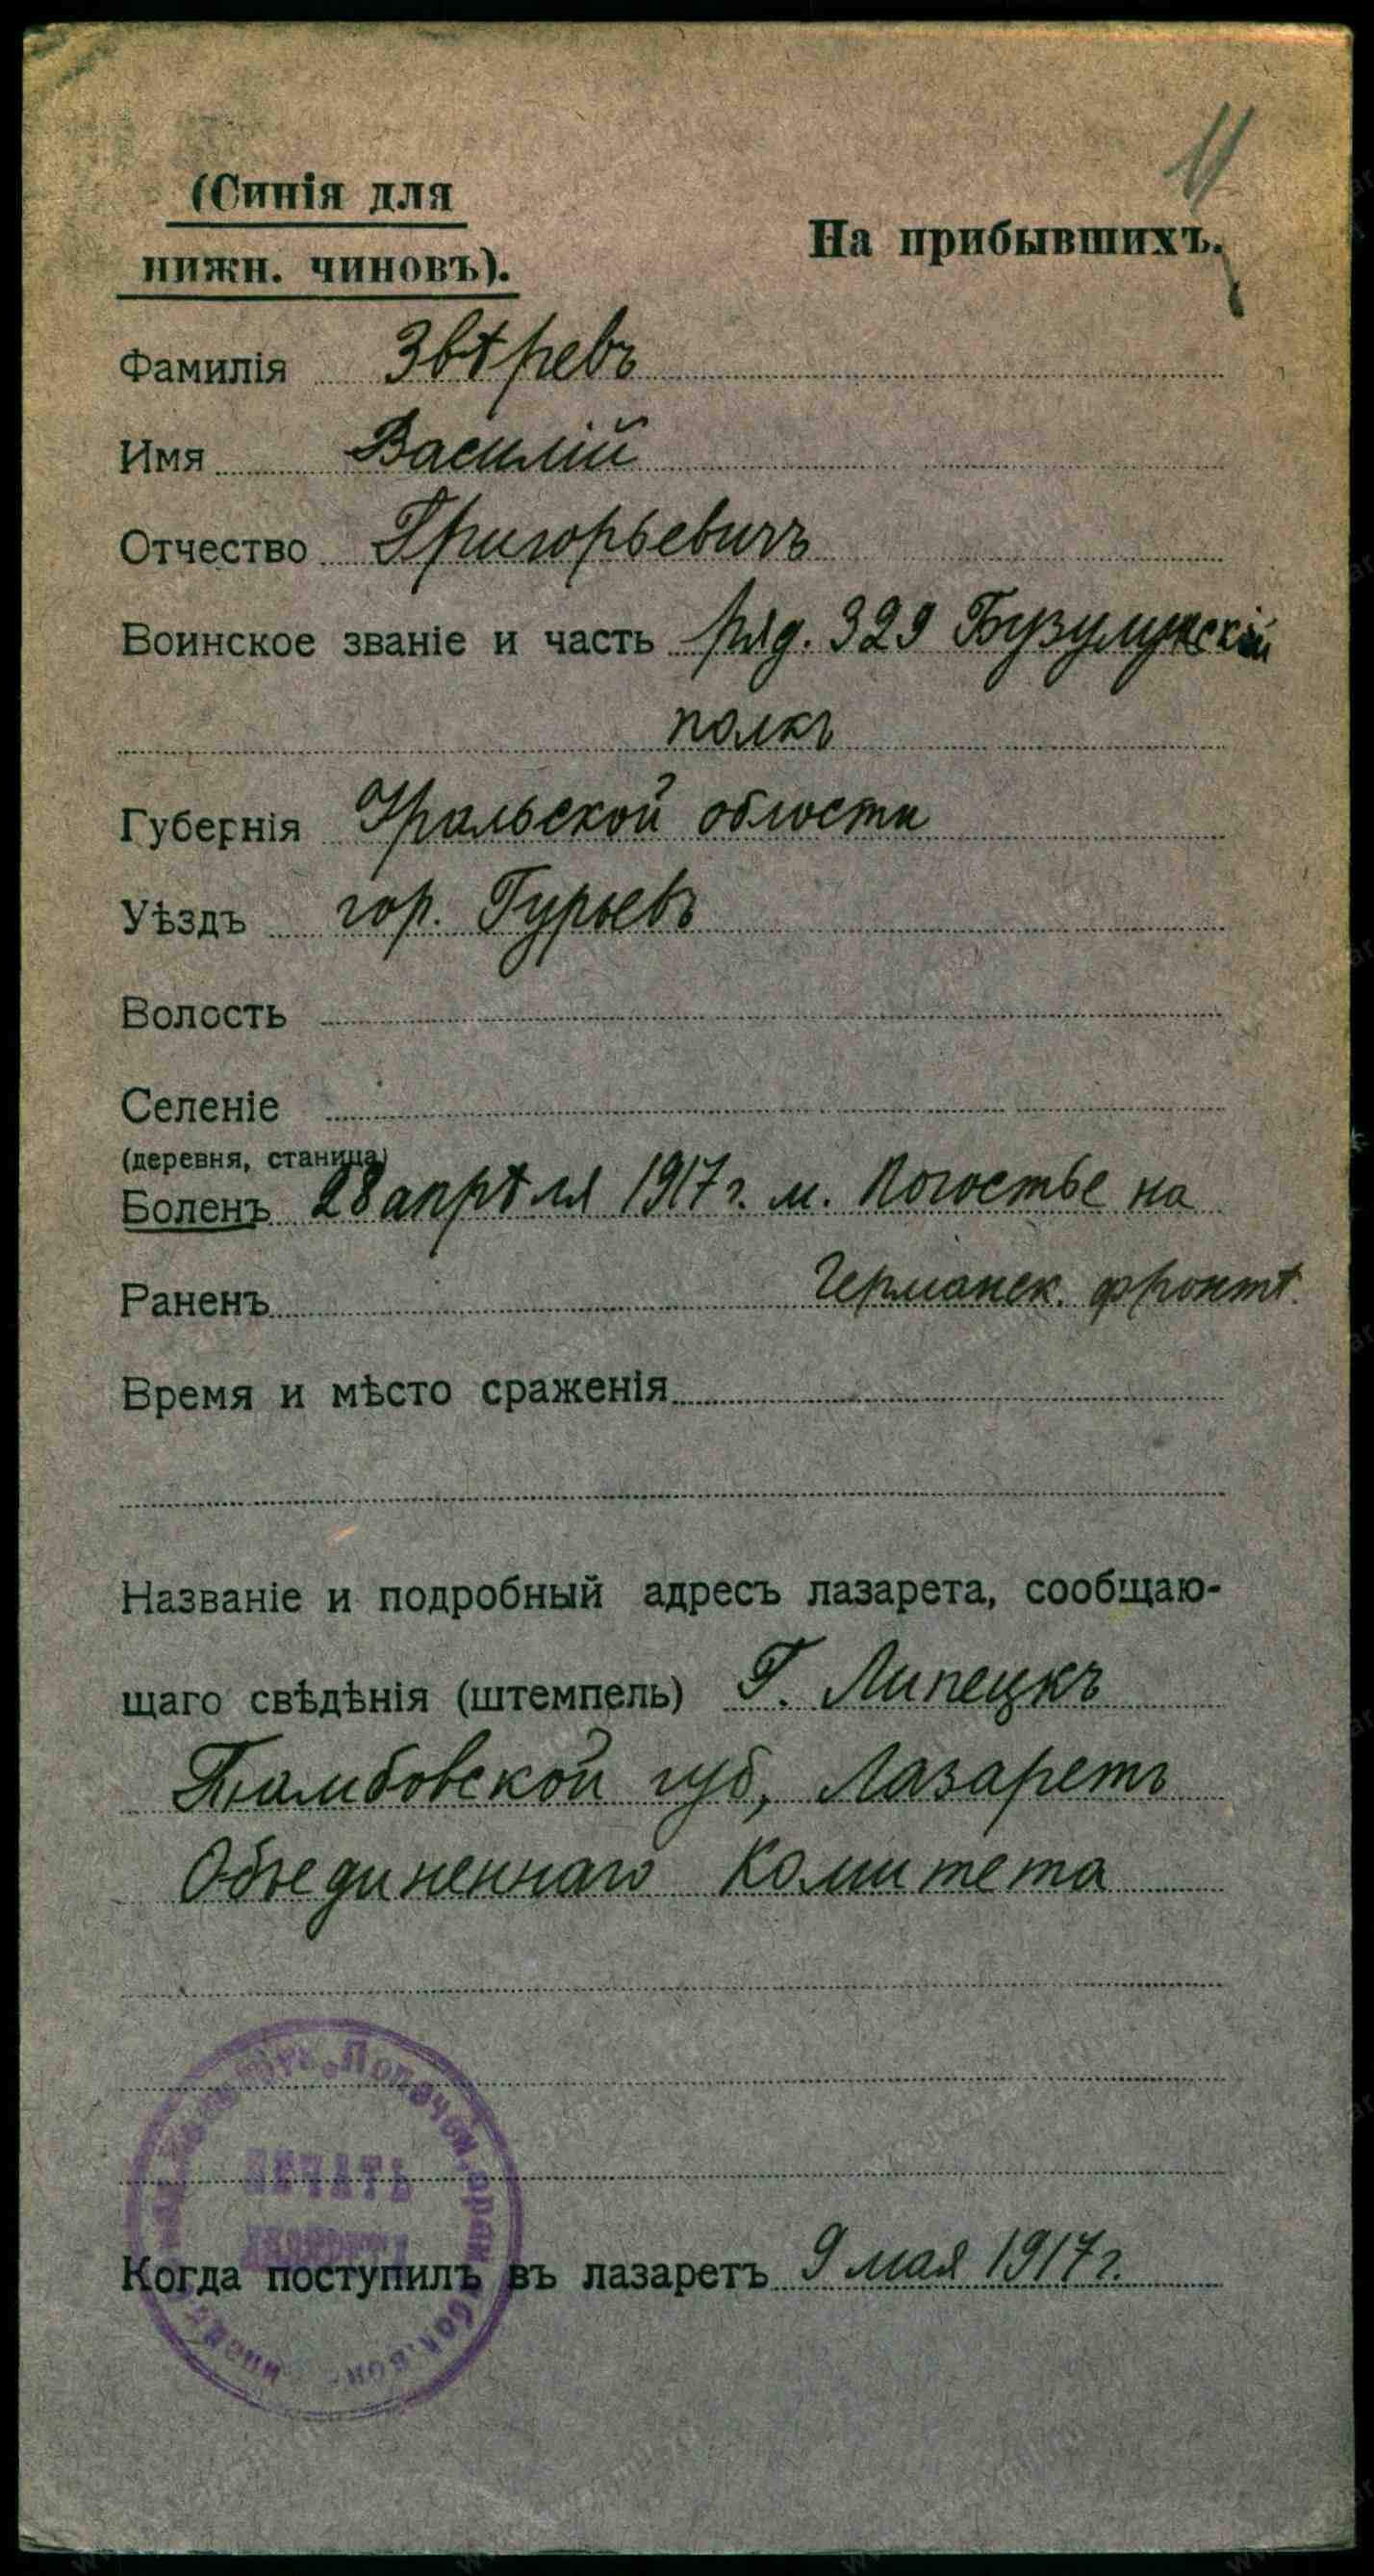 (Синія для
нижн. чиновъ).
На прибывшихъ.
Фамилія Звѣревъ
Имя Василій
Отчество Григорьевичъ
Воинское званіе и часть ряд. 329 Бузулукскій
полкъ
Губернія Уральской области
Уѣздъ гор. Гурьевъ
Волость
Селеніе
(деревня, станица)
Боленъ 28 апрѣля 1917 г. м. Погостье на
Раненъ Германск. фронтѣ.
Время и мѣсто сраженія
Названіе и подробный адресъ лазарета, сообщаю-
щаго свѣдѣнія (штемпель) Г. Липецкъ
Тамбовской губ, Лазаретъ
Объединеннаго Комитета
ПЕЧАТЬ
Когда поступилъ въ лазаретъ 9 мая 1917 г.